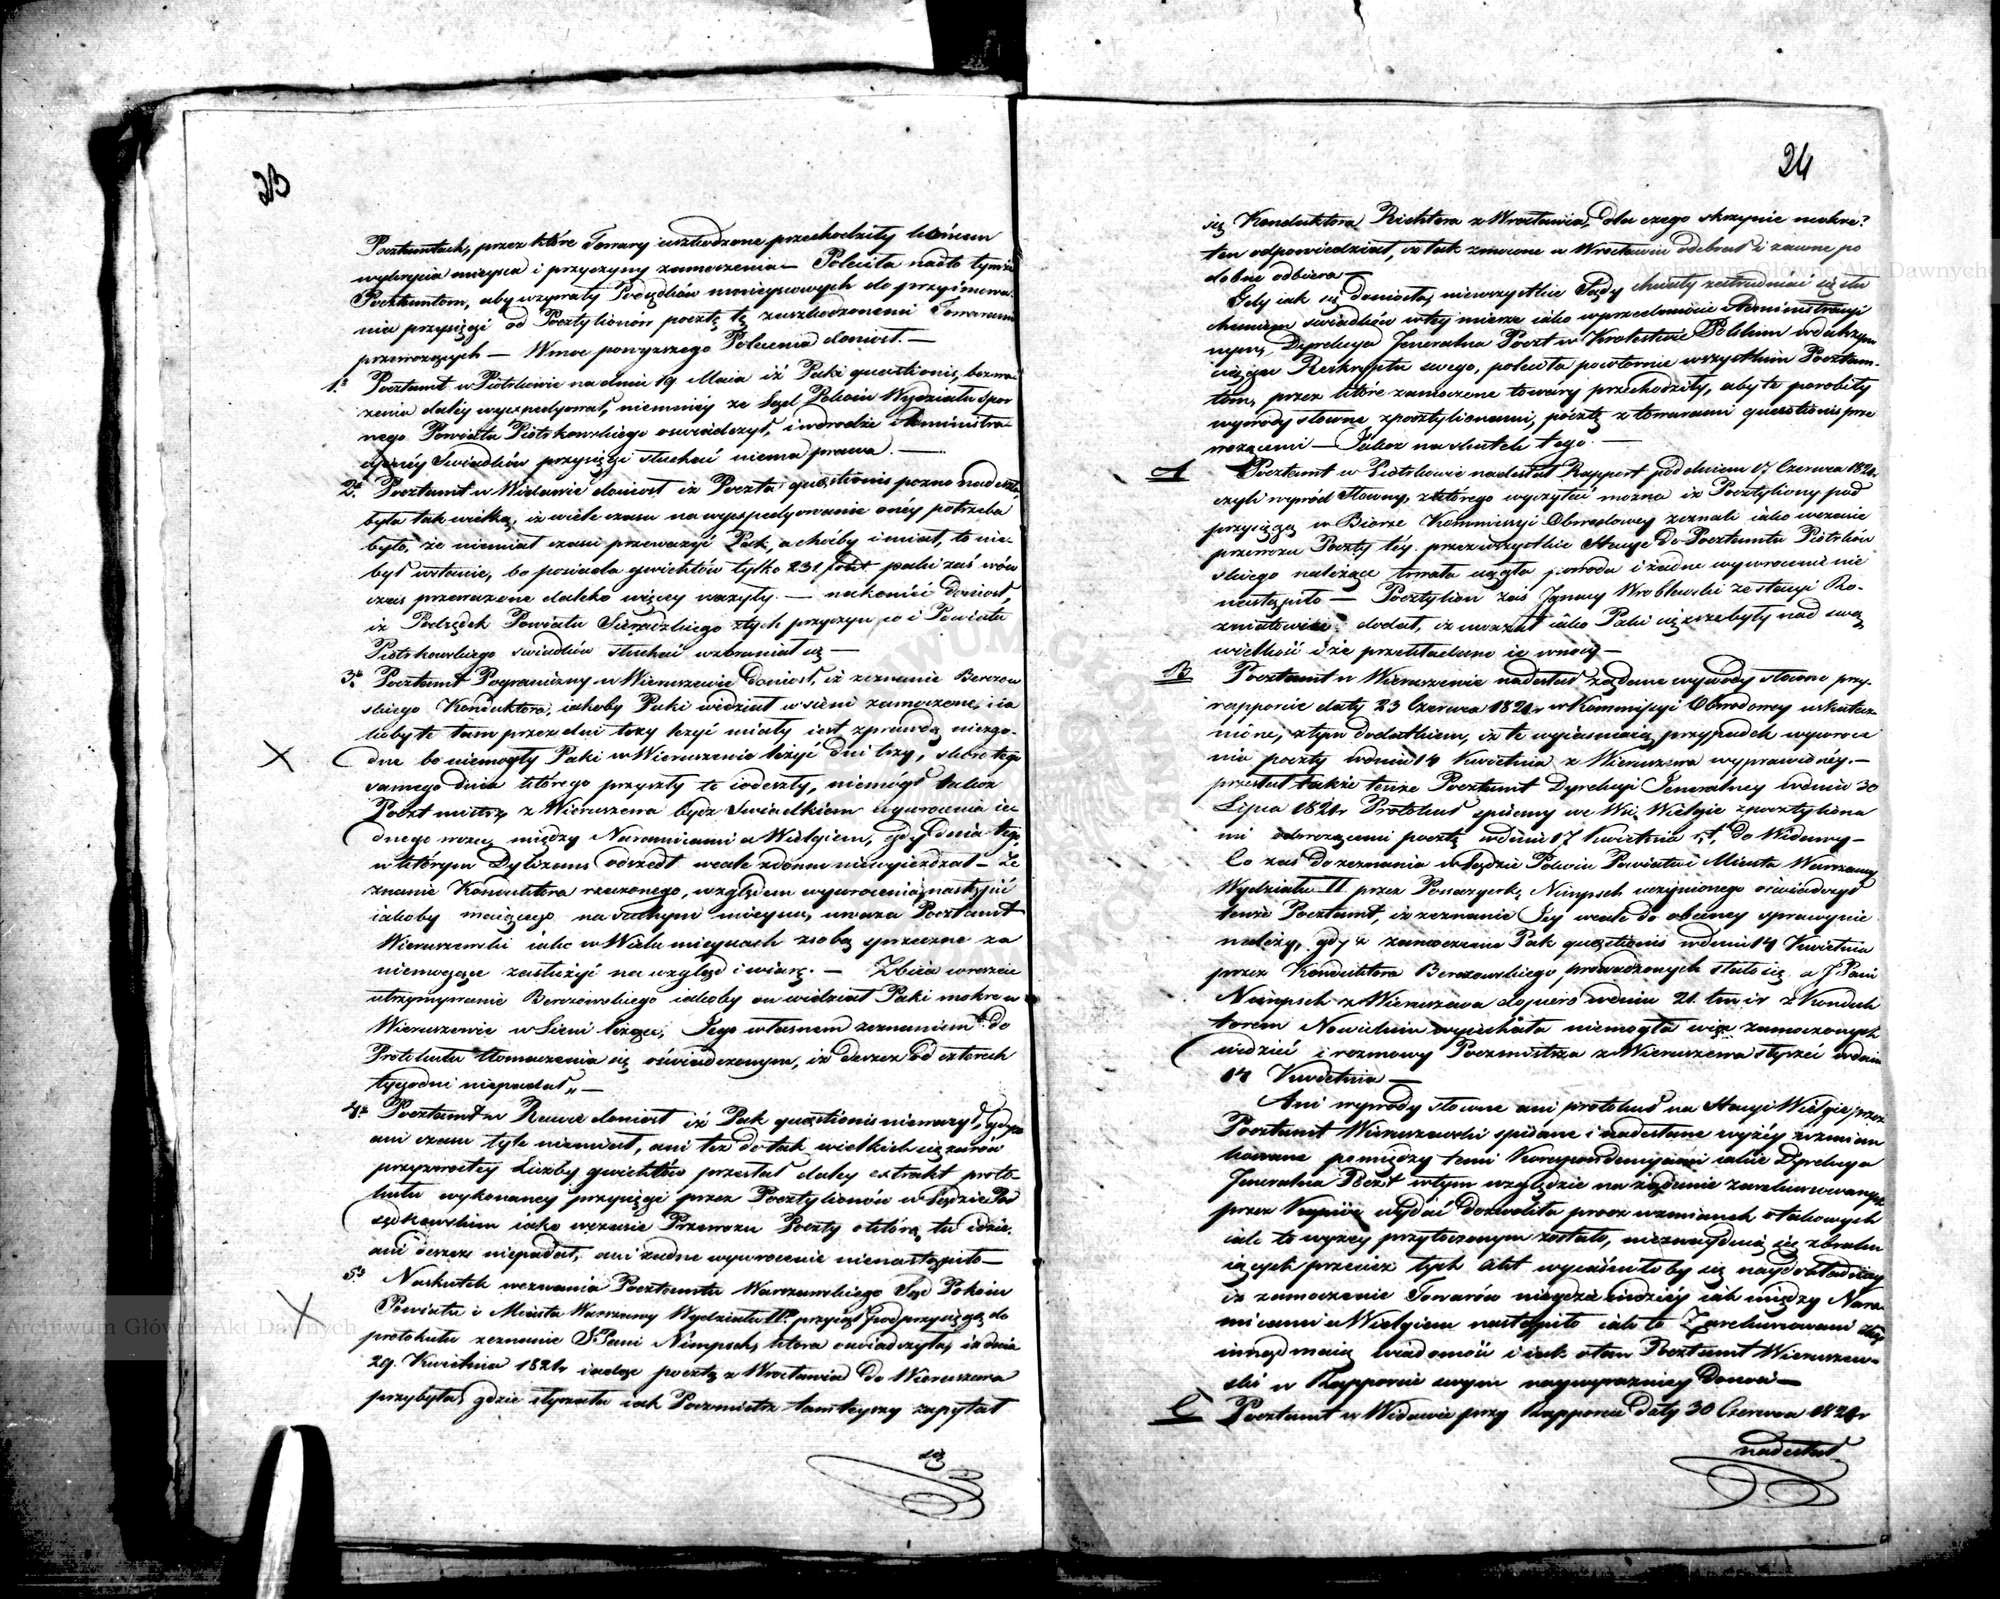 23
Pocztamtach, przez które Towary uszkodzone przechodziły końcem
wykrycia mieysca i przyczyny zamoczenia — Poleciła nadto tymże
Pocztamtom, aby wzywały Podsędków mieyscowych do przyimowa-
nia przysięgi od Pocztylionów pocztę tę z uszkodzonemi Towarami
przewożących — W moc powyższego Polecenia doniosł. —
1o Pocztamt w Piotrkowie na dniu 19 Maia iż Paki quaestionis bez wa-
żenia daléy wyexpedyował, niemniéy że Sąd Pokoiu Wydziału Spor
nego Powiatu Piotrkowskiego oświadczył, iż w drodze Administra-
cyinéy Swiadków przysięgi słuchać niema prawa. —
2o Pocztamt w Widawie doniosł iż Poczta quaestionis pozno nadeszła,
była tak wielką, iż wiele czasu na wyexpedyowanie onéy potrzeba
było, że niemiał czasu przeważyć Pak, a choćby i miał, to nie-
był w stanie, bo posiada gwichtów tylko 231 funt paki zaś wów
czas przewożone daleko więcey ważyły. — nakoniec doniosł,
iż Podsędek Powiatu Sieradzkiego z tych przyczyn co i Powiatu
Piotrkowskiego swiadków słuchać wzbraniał się —
3o Pocztamt Pograniczny w Wieruszewie doniosł, iż zeznanie Berezow
skiego Konduktora, iakoby Paki widział w sieni zamoczone, i ia
koby te tam przez dni trzy leżyć miały iest z prawdą niezgo-
dne bo niemogły Paki w Wieruszewie leżyć dni trzy, skoro tego
samego dnia którego przyszły te i odeszły, niemógł także
Pocztmistrz z Wieruszewa bydz Swiadkiem wywrocenia ie
dnego wozu między Naramicami a Wielgiem, gdy dnia tego
w którym Dyliżans odszedł wcale z domu niewyieżdżał — Ze
znanie Konduktora rzeczonego, względem wywrocenia nastąpić
iakoby maiącego na suchym mieyscu, uważa Pocztamt
Wieruszewski iako w Wielu mieyscach z sobą sprzeczne za
niemogące zasłużyć na wzgląd i wiarę. — Zbiia wreszcie
utrzymywanie Berezowskiego iakoby on widział Paki mokre w
Wieruszewie w Sieni leżące, Jego własnem zeznaniem do
Protokułu tłomaczenia się oświadczonym, iż deszcz od czterech
tygodni niepadał „ —
4o Pocztamt w Rawie doniosł iż Pak quaestionis nieważył, gdyż
ani czasu tyle niemiał, ani też do tak wielkich ciężarów
przyzwoitey Liczby gwichtów przesłał daley extrakt proto-
kułu wykonaney przysięgi przez Pocztylionów w Sądzie Pod
sędkowskim iako w czasie Przewozu Poczty o którą tu idzie,
ani deszcz niepadał, ani żadne wywrocenie nienastąpiło —
5o Naskutek wezwania Pocztamtu Warszawskiego Sąd Pokoiu
Powiatu i Miasta Warszawy Wydziału II. przyiął pod przysięgą do
protokułu zeznanie JPani Nimpsch, która oświadczyła, iż dnia
29. Kwietnia 1821r iadąc pocztą z Wrocławia do Wieruszewa
przybyła, gdzie słyszała iak Poczmistrz tamteyszy zapytał
się
24
się Konduktora Richtera z Wrocławia, dla czego skrzynie mokre?
ten odpowiedział, iż tak zmoczone w Wrocławiu odebrał i zawsze po
dobne odbiera —
Gdy iak się doniosło, niewszystkie Sądy chciały zatrudniać się słu
chaniem swiadków w téy mierze iako w przedmiocie Administracyi-
nym, Dyrekcya Jeneralna Poczt w Krolestwie Polskim w dalszym
ciągu Reskryptu swego, poleciła powtornie wszystkim Pocztam-
tom, przez które zamoczone towary przechodziły, aby te porobiły
wywody słowne z pocztylionami, pocztę z towarami quaestionis prze
wożącemi — Jakoż na skutek tego. —
A Pocztamt w Piotrkowie nadesłał Rapport pod dniem 17 Czerwca 1821r
czyli wywód Słowny, z którego wyczytać można iż Pocztyliony pod
przysięgą w Biorze Kommissyi Obwodowey zeznali iako w czasie
przewozu Poczty téy, przez wszystkie Stacye do Pocztamtu Piotrkow
skiego należące trwała ciągła pogoda i żadne wywrocenie nie
nastąpiło — Pocztylion zaś Jgnacy Wroblewski ze stacyi Ro-
zniatowice dodał, iż uważał iako Paki się zszebyły nad swą
wielkość i że przekładane ie w nocy —
B Pocztamt w Wieruszewie nadesłał żądane wywody słowne przy
rapporcie daty 23 Czerwca 1821r w Kommissyi Obwodowey uskutecz
nione, z tym dodatkiem, iż te wyiaśniaią przypadek wywroce
nia poczty w dniu 14 Kwietnia z Wieruszewa wyprawionéy. —
przesłał także tenże Pocztamt Dyrekcyi Jeneralney w dniu 30
Lipca 1821r Protokuł spisany we Wsi Wielgie z pocztyliona
mi odwożącemi pocztę w dniu 17 Kwietnia r.t. do Widawy —
Co zaś do zeznania w Sądzie Pokoiu Powiatu i Miasta Warszawy
Wydziału II przez Passażerkę Nimpsch uczynionego oświadczył
tenże Pocztamt, iż zeznanie Jey wcale do obecney sprawy nie
należy, gdyż zamoczenie Pak quaestionis w dniu 14 Kwietnia
przez Konduktora Berezowskiego prowadzonych stało się, a J Pani
Nimpsch z Wieruszewa dopiero w dniu 21. tm ir z Konduk
torem Nowickim wyiechała niemogła więc zamoczonych
widzieć i rozmowy Poczmistrza z Wieruszewa słyszeć w dniu
14 Kwietnia —
Ani wywody słowne ani protokuł na Stacyi Wielgie przez
Pocztamt Wieruszewski spisane i nadesłane wyżéy wzmian
kowane pomiędzy temi Korespondencyami iakie Dyrekcya
Jeneralna Poczt w tym względzie na żądanie zareklamowanych
przez Kupców wydać dozwoliła procz wzmianek o takowych
iak to wyżey przytoczonym zostało, nieznayduią się z braku
iących przecież tych Akt wyiaśniłoby się naydokładniey
iż zamoczenie Towarów nigdzie indziey iak między Nara
micami a Wielgiem nastąpiło iak to Zareklamowani
maią wiadomość i iak o tem Pocztamt Wieruszew-
ski w Rapporcie swym naywyrazniey donosi —
C Pocztamt w Widawie przy Rapporcie daty 30 Czerwca 1821r
nadesłał
Archiwum Główne Akt Dawnych
Archiwum Główne Akt Dawnych